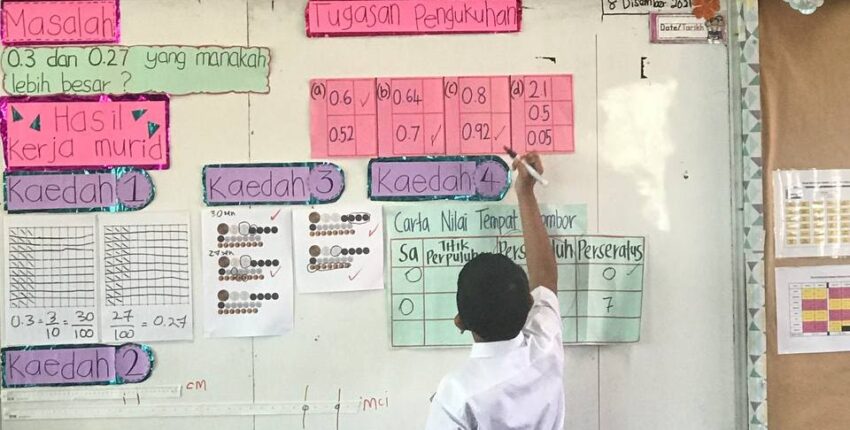 Masalah
Tugasan Pengukuhan
8 Disember 2021
Date/Tarikh
0.3 dan 0.27 yang manakah
lebih besar ?
(a) 0.6 ✓ (b) 0.64 (c) 0.8 (d) 2.1
0.5
0.52 0.7 ✓ 0.92 ✓ 0.05
Hasil
kerja murid
Kaedah 1
Kaedah 3
Kaedah 4
30 sen
Carta Nilai Tempat
Sa Titik Perpuluhan Perseratus
0 0
0 7
0.3 = 3/10 = 30/100
27/100 = 0.27
Kaedah 2
cm
inci